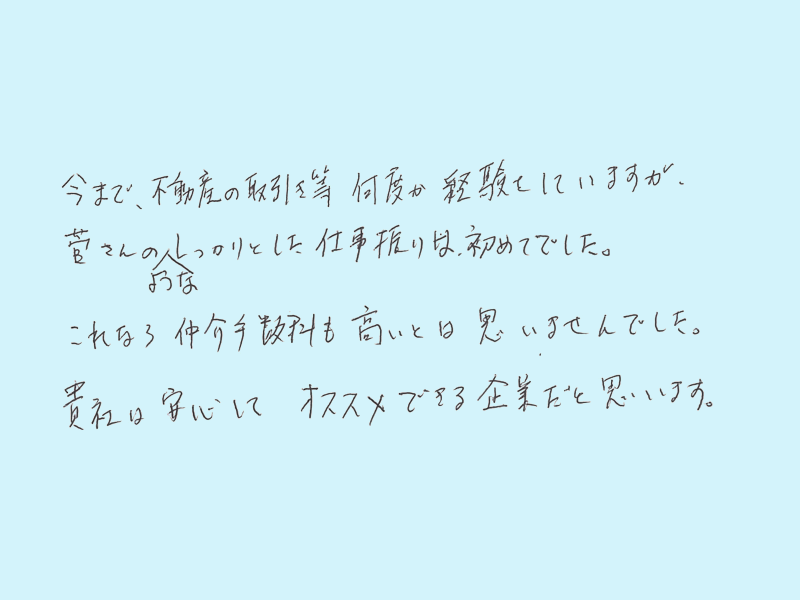 今まで、不動産の取引を等 何度か 経験をしていますが、
菅さんのようなしっかりとした仕事振りは、初めてでした。
これなら仲介手数料も高いとは思いませんでした。
貴社は安心して オススメできる企業だと思いいます。